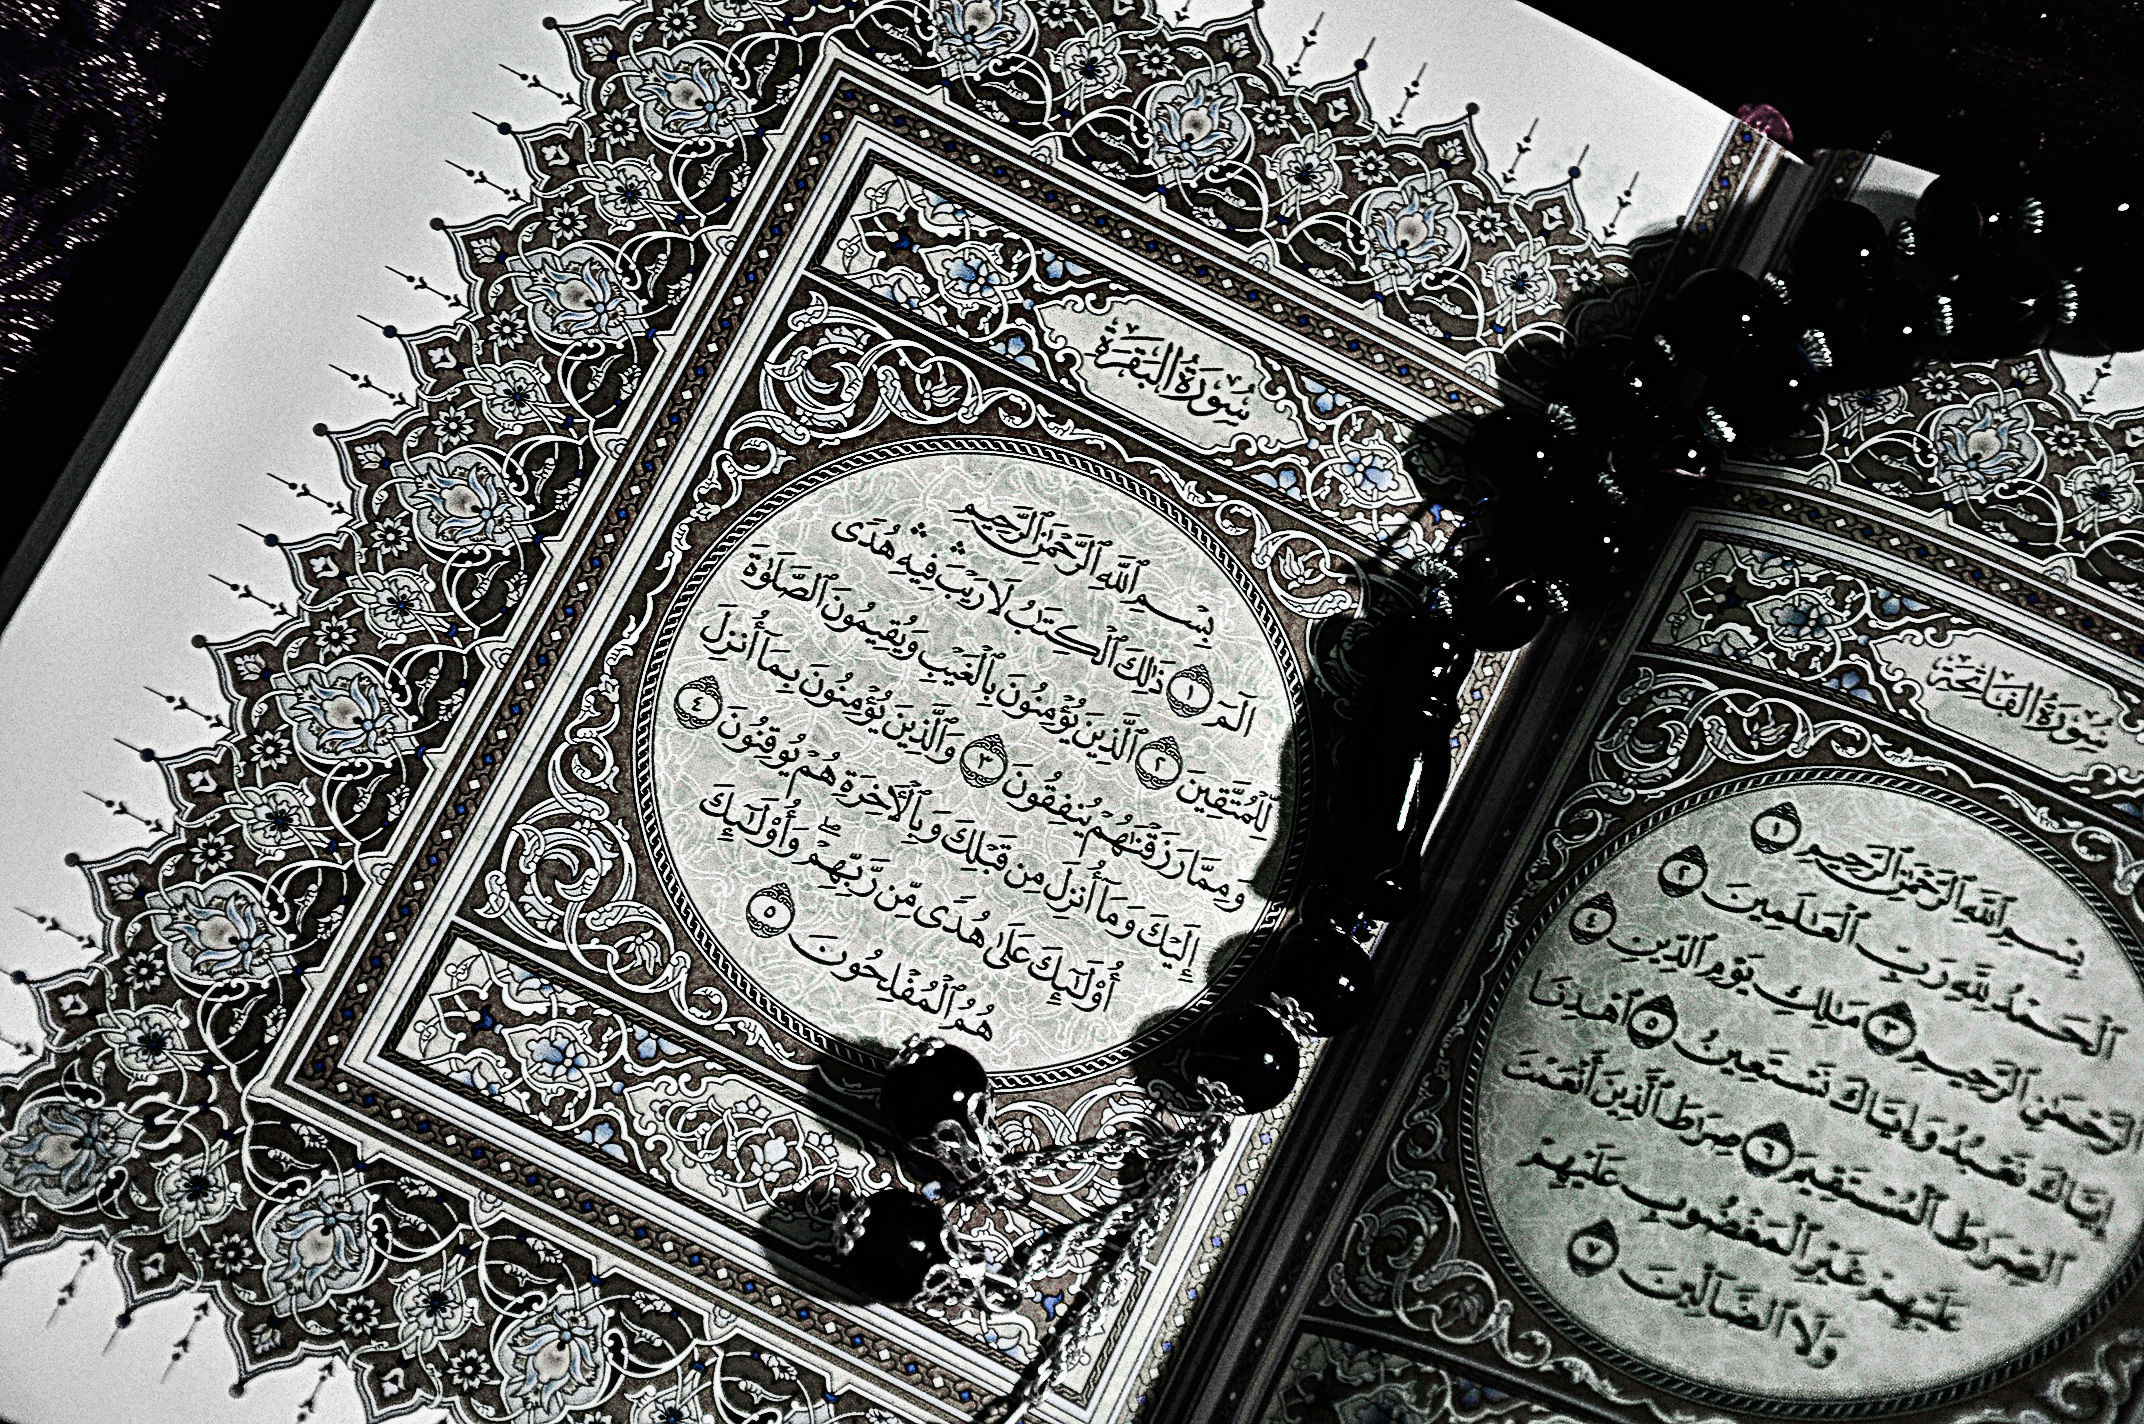 سُورَةُ الفَاتِحَةِ
بِسْمِ ٱللَّهِ ٱلرَّحْمَٰنِ ٱلرَّحِيمِ ١
ٱلْحَمْدُ لِلَّهِ رَبِّ ٱلْعَٰلَمِينَ ٢
ٱلرَّحْمَٰنِ ٱلرَّحِيمِ ٣ مَٰلِكِ يَوْمِ ٱلدِّينِ ٤
إِيَّاكَ نَعْبُدُ وَإِيَّاكَ نَسْتَعِينُ ٥ ٱهْدِنَا
ٱلصِّرَٰطَ ٱلْمُسْتَقِيمَ ٦ صِرَٰطَ ٱلَّذِينَ أَنْعَمْتَ
عَلَيْهِمْ غَيْرِ ٱلْمَغْضُوبِ عَلَيْهِمْ
وَلَا ٱلضَّآلِّينَ ٧
سُورَةُ البَقَرَةِ
بِسْمِ ٱللَّهِ ٱلرَّحْمَٰنِ ٱلرَّحِيمِ
الٓمٓ ١ ذَٰلِكَ ٱلْكِتَٰبُ لَا رَيْبَ ۛ فِيهِ ۛ هُدًى
لِّلْمُتَّقِينَ ٢ ٱلَّذِينَ يُؤْمِنُونَ بِٱلْغَيْبِ وَيُقِيمُونَ ٱلصَّلَوٰةَ
وَمِمَّا رَزَقْنَٰهُمْ يُنفِقُونَ ٣ وَٱلَّذِينَ يُؤْمِنُونَ بِمَآ أُنزِلَ
إِلَيْكَ وَمَآ أُنزِلَ مِن قَبْلِكَ وَبِٱلْأَخِرَةِ هُمْ يُوقِنُونَ ٤
أُو۟لَٰٓئِكَ عَلَىٰ هُدًى مِّن رَّبِّهِمْ ۖ وَأُو۟لَٰٓئِكَ
هُمُ ٱلْمُفْلِحُونَ ٥